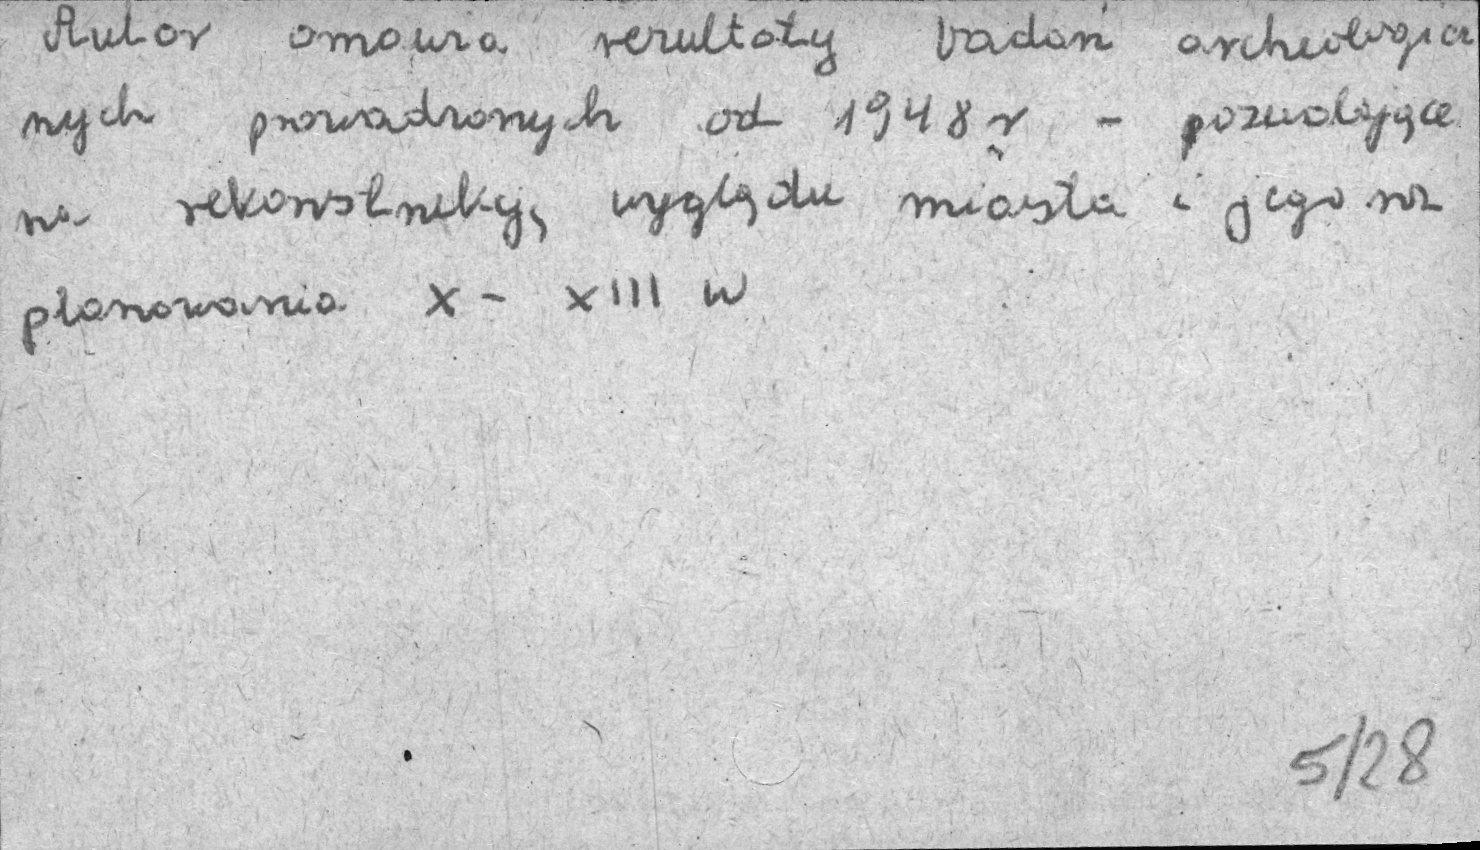 Autor omawia rezultaty badań archeologicz
nych prowadzonych od 1948 r - pozwalające
na rekonstrukcję wyglądu miasta i jego roz
planowania X - XIII w
5/28